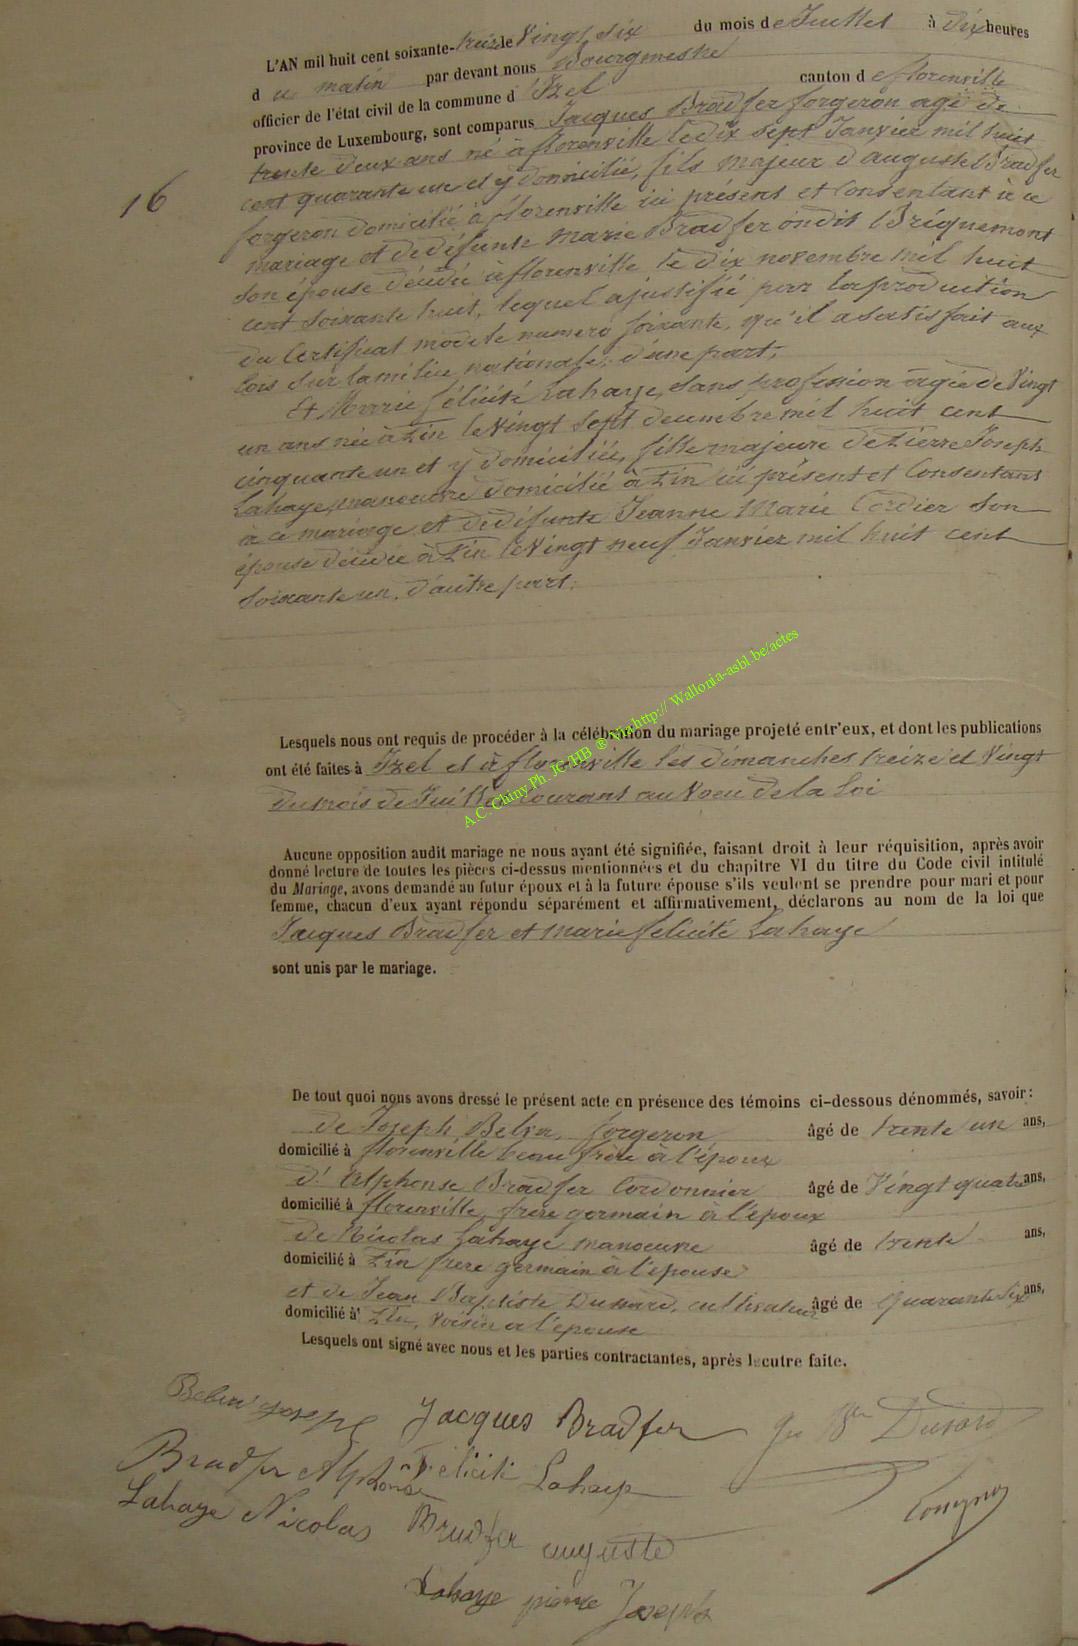 L'AN mil huit cent soixante-treize le Vingt six du mois de Juillet à dix heures
d u matin par devant nous Bourgmestre
officier de l'état civil de la commune d' Izel canton d e florenville
province de Luxembourg, sont comparus Jacques Bradfer forgeron agé de
trente deux ans né à florenville le dix sept Janvier mil huit
cent quarante un et y domicilié, fils majeur d'auguste Bradfer
16
forgeron domicilié à florenville ici présent et Consentant à ce
mariage et de défunte Marie Bradfer ondit Briquemont
son épouse décédée à florenville le dix novembre mil huit
cent soixante huit, lequel a justifié par la production
du Certificat modele numero soixante, qu'il a satisfait aux
lois sur la milice nationale, d'une part;
Et Marie félicité Lahaye, sans profession agée de Vingt
un ans née à Pin le Vingt sept decembre mil huit cent
cinquante un et y domiciliée, fille majeure de Pierre Joseph
Lahaye manoeuvre domicilié à Pin ici présent et Consentant
à ce mariage et de défunte Jeanne Marie Cordier son
épouse décédée à Pin le Vingt neuf Janvier mil huit cent
soixante un, d'autre part.
Lesquels nous ont requis de procéder à la célébration du mariage projeté entr'eux, et dont les publications
ont été faites à Izel et à florenville les dimanches treize et Vingt
du mois de Juillet courant au Voeu de la Loi
A.C. Chiny Ph. JC/HB ® Via http:// Wallonia-asbl.be/actes
Aucune opposition audit mariage ne nous ayant été signifiée, faisant droit à leur réquisition, après avoir
donné lecture de toutes les pièces ci-dessus mentionnées et du chapitre VI du titre du Code civil intitulé
du Mariage, avons demandé au futur époux et à la future épouse s'ils veulent se prendre pour mari et pour
femme, chacun d'eux ayant répondu séparément et affirmativement, déclarons au nom de la loi que
Jacques Bradfer et Marie felicité Lahaye
sont unis par le mariage.
De tout quoi nous avons dressé le présent acte en présence des témoins ci-dessous dénommés, savoir:
de Joseph Belva, forgeron âgé de trente un ans,
domicilié à florenville beau frère à l'époux
d' Alphonse Bradfer Cordonnier âgé de Vingt quatre ans,
domicilié à florenville, frère germain à l'époux
de Nicolas Lahaye manoeuvre âgé de trente ans,
domicilié à Pin frere germain à l'épouse
et de Jean Baptiste Dussard, cultivateur âgé de quarante six ans,
domicilié à Pin, Voisin à l'épouse
Lesquels ont signé avec nous et les parties contractantes, après lecutre faite.
Belva joseph Jacques Bradfer Jn Bte Dusard
Bradfer Alphonse Félicité Lahaye
Lahaye Nicolas Bradfer auguste
Lahaye pierre Joseph